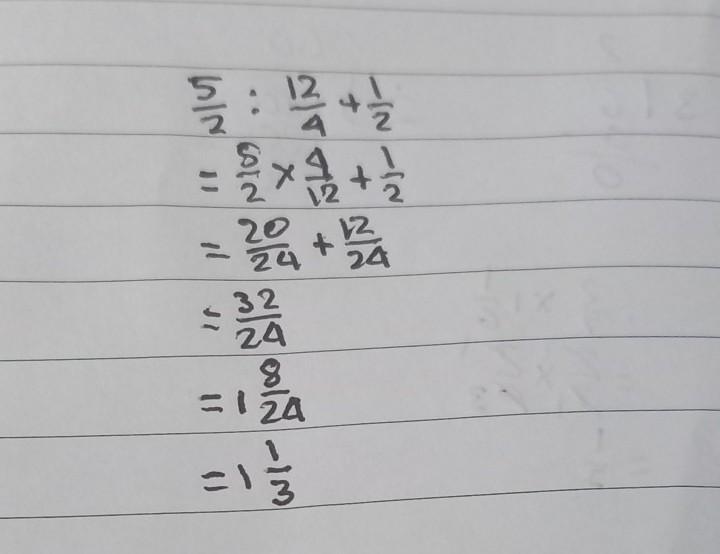 5/2 : 12/4 + 1/2
= 5/2 × 4/12 + 1/2
= 20/24 + 12/24
= 32/24
= 1 8/24
= 1 1/3